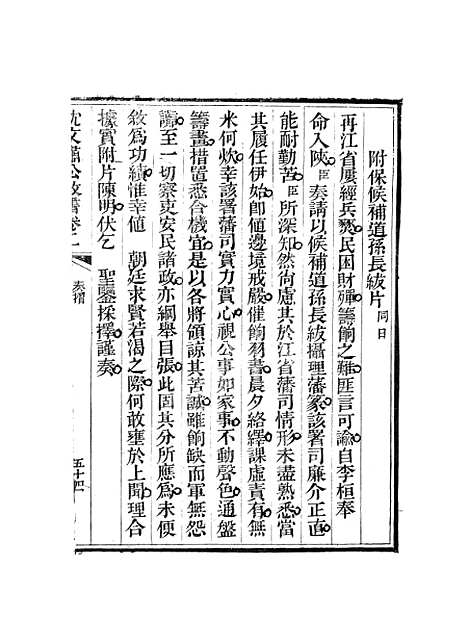 附保候補道孫長紱片 同日
再江省屢經兵燹民困財殫籌餉之難匪言可諭自李桓奉
命入陝臣奏請以候補道孫長紱攝理藩篆該署司廉介正直
能耐勤苦臣所深知然尚慮其於江省藩司情形未盡熟悉當
其履任伊始即値邊境戒嚴催餉羽書晨夕絡繹課虛責有無
米何炊幸該署藩司實力實心視公事如家事不動聲色通盤
籌畫措置悉合機宜是以各將領諒其苦誠雖餉缺而軍無怨
讟至一切察吏安民諸政亦綱舉目張此固其分所應爲未便
敘爲功績惟幸値 朝廷求賢若渴之際何敢壅於上聞理合
據實附片陳明伏乞 聖鑒採擇謹奏
沈文肅公政書卷二 奏摺 五十四